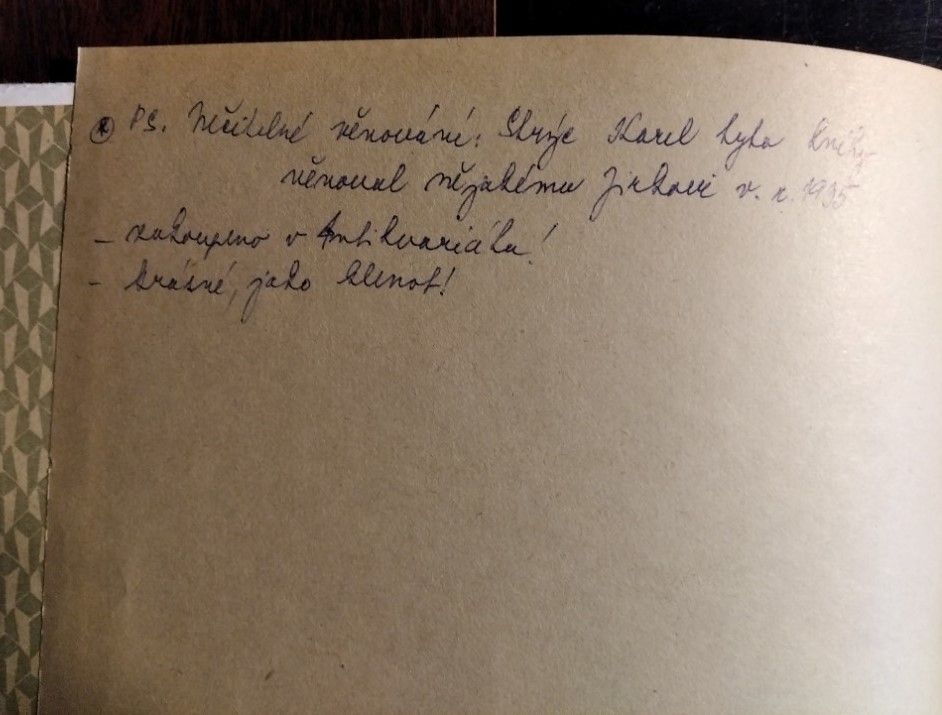 PS. Nečitelné věnování: Strýc Karel tyto knihy
věnoval nějakému Jirkovi v r. 1935
- zakoupeno v Antikvariátu!
- krásné, jako klenot!